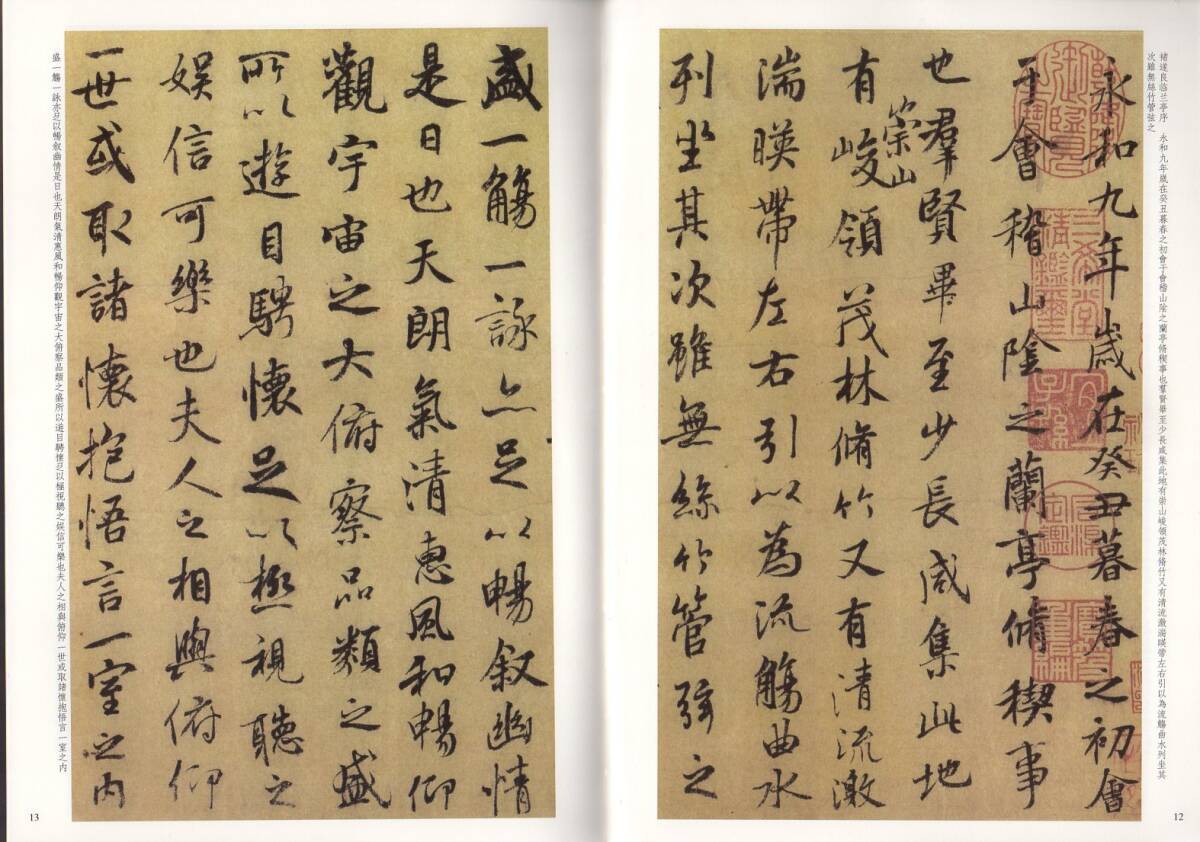 褚遂良临兰亭序　永和九年歲在癸丑暮春之初會于會稽山陰之蘭亭脩稧事也羣賢畢至少長咸集此地有崇山峻領茂林脩竹又有清流激湍暎帶左右引以為流觴曲水列坐其
次雖無絲竹管弦之
永和九年歲在癸丑暮春之初會
于會稽山陰之蘭亭脩稧事
也羣賢畢至少長咸集此地
有崇山峻領茂林脩竹又有清流激
湍暎帶左右引以為流觴曲水
列坐其次雖無絲竹管弦之
三希堂精鑑璽
宜子孫
12
盛一觴一詠亦足以暢叙幽情
是日也天朗氣清惠風和暢仰
觀宇宙之大俯察品類之盛
所以遊目騁懷足以極視聽之
娛信可樂也夫人之相與俯仰
一世或取諸懷抱悟言一室之内
盛一觴一詠亦足以暢叙幽情是日也天朗氣清惠風和暢仰觀宇宙之大俯察品類之盛所以遊目騁懷足以極視聽之娛信可樂也夫人之相與俯仰一世或取諸懷抱悟言一室之内
13